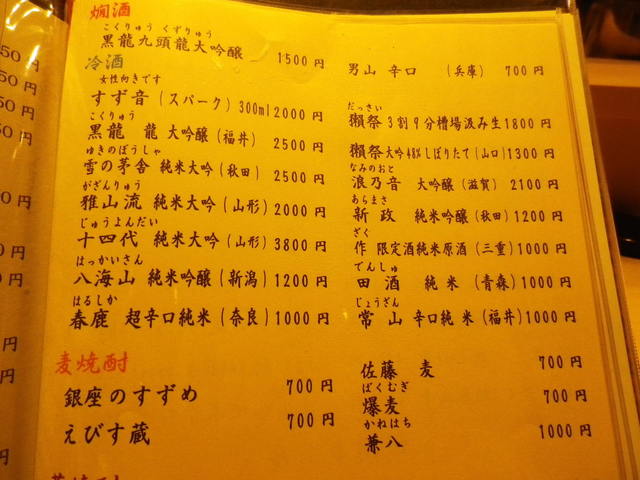 燗酒
こくりゅう くずりゅう
黒龍九頭龍大吟醸 1500円
冷酒
女性向きです
すず音(スパーク)300ml 2000円
こくりゅう
黒龍 龍 大吟醸(福井) 2500円
ゆきのぼうしゃ
雪の茅舎 純米大吟(秋田) 2500円
がざんりゅう
雅山流 純米大吟(山形) 2000円
じゅうよんだい
十四代 純米大吟(山形) 3800円
はっかいさん
八海山 純米吟醸(新潟) 1200円
はるしか
春鹿 超辛口純米(奈良) 1000円
男山 辛口 (兵庫) 700円
だっさい
獺祭3割9分槽場汲み生 1800円
獺祭大吟48%しぼりたて(山口) 1300円
なみのおと
浪乃音 大吟醸(滋賀) 2100円
あらまさ
新政 純米吟醸(秋田) 1200円
ざく
作 限定酒純米原酒(三重) 1000円
でんしゅ
田酒 純米 (青森) 1000円
じょうざん
常山 辛口純米(福井) 1000円
麦焼酎
銀座のすずめ 700円
えびす蔵 700円
佐藤 麦 700円
ばくむぎ
爆麦 700円
かねはち
兼八 1000円